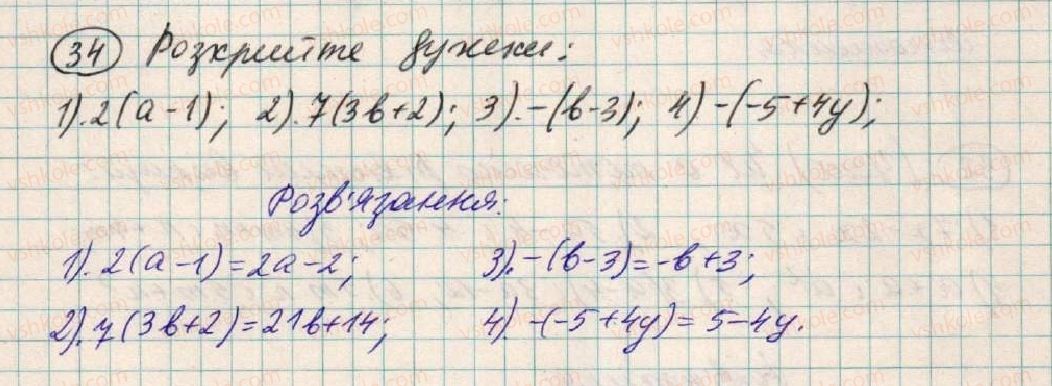 34 Розкрийте дужки:
1). 2(a-1); 2). 7(3b+2); 3). -(b-3); 4) -(-5+4y);
Розв'язання:
1). 2(a-1)=2a-2; 3). -(b-3)=-b+3;
2). 7(3b+2)=21b+14; 4). -(-5+4y)=5-4y.